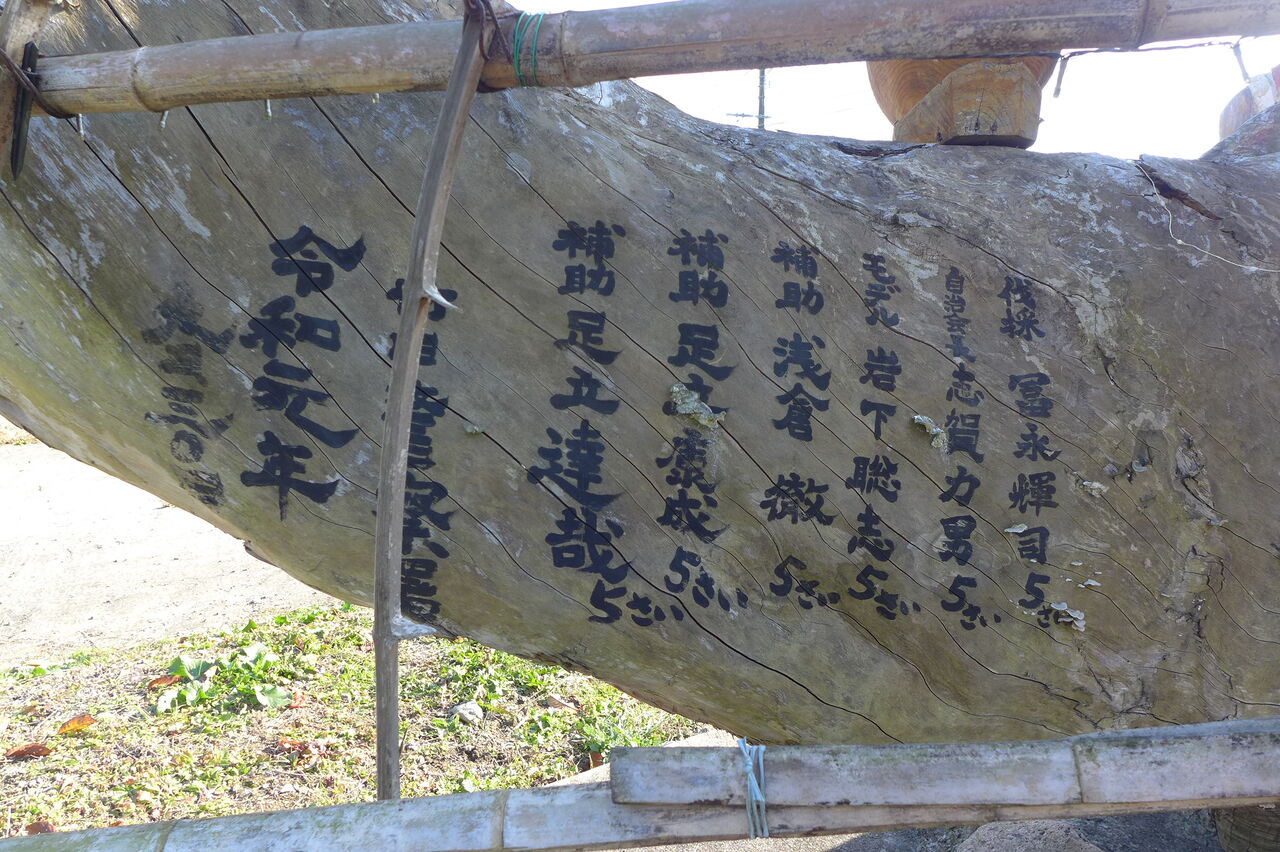 伐採 冨永輝司 5さい
自治会長 志賀力男 5さい
モデル 岩下聡志 5さい
補助 浅倉 徹 5さい
補助 足立康成 5さい
補助 足立達哉 5さい
警察署
令和元年